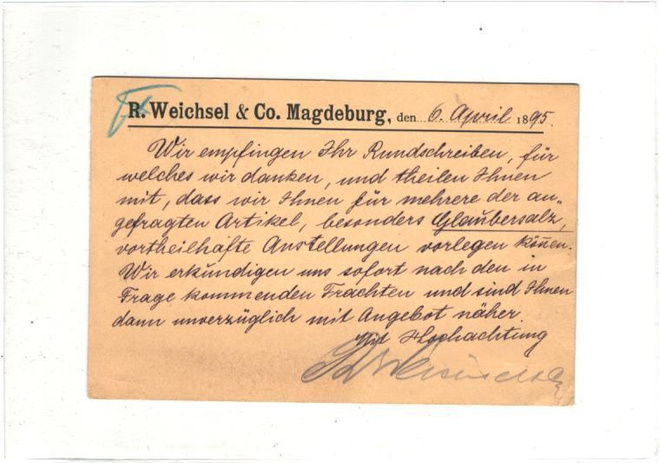 R. Weichsel & Co. Magdeburg, den 6. April 1895.
Wir empfingen Ihr Rundschreiben, für
welches wir danken, und theilen Ihnen
mit, dass wir Ihnen für mehrere der an-
gefragten Artikel, besonders Glaubersalz,
vortheilhafte Anstellungen vorlegen können.
Wir erkundigen uns sofort nach den in
Frage kommenden Frachten und sind Ihnen
dann unverzüglich mit Angebot näher.
Mit Hochachtung